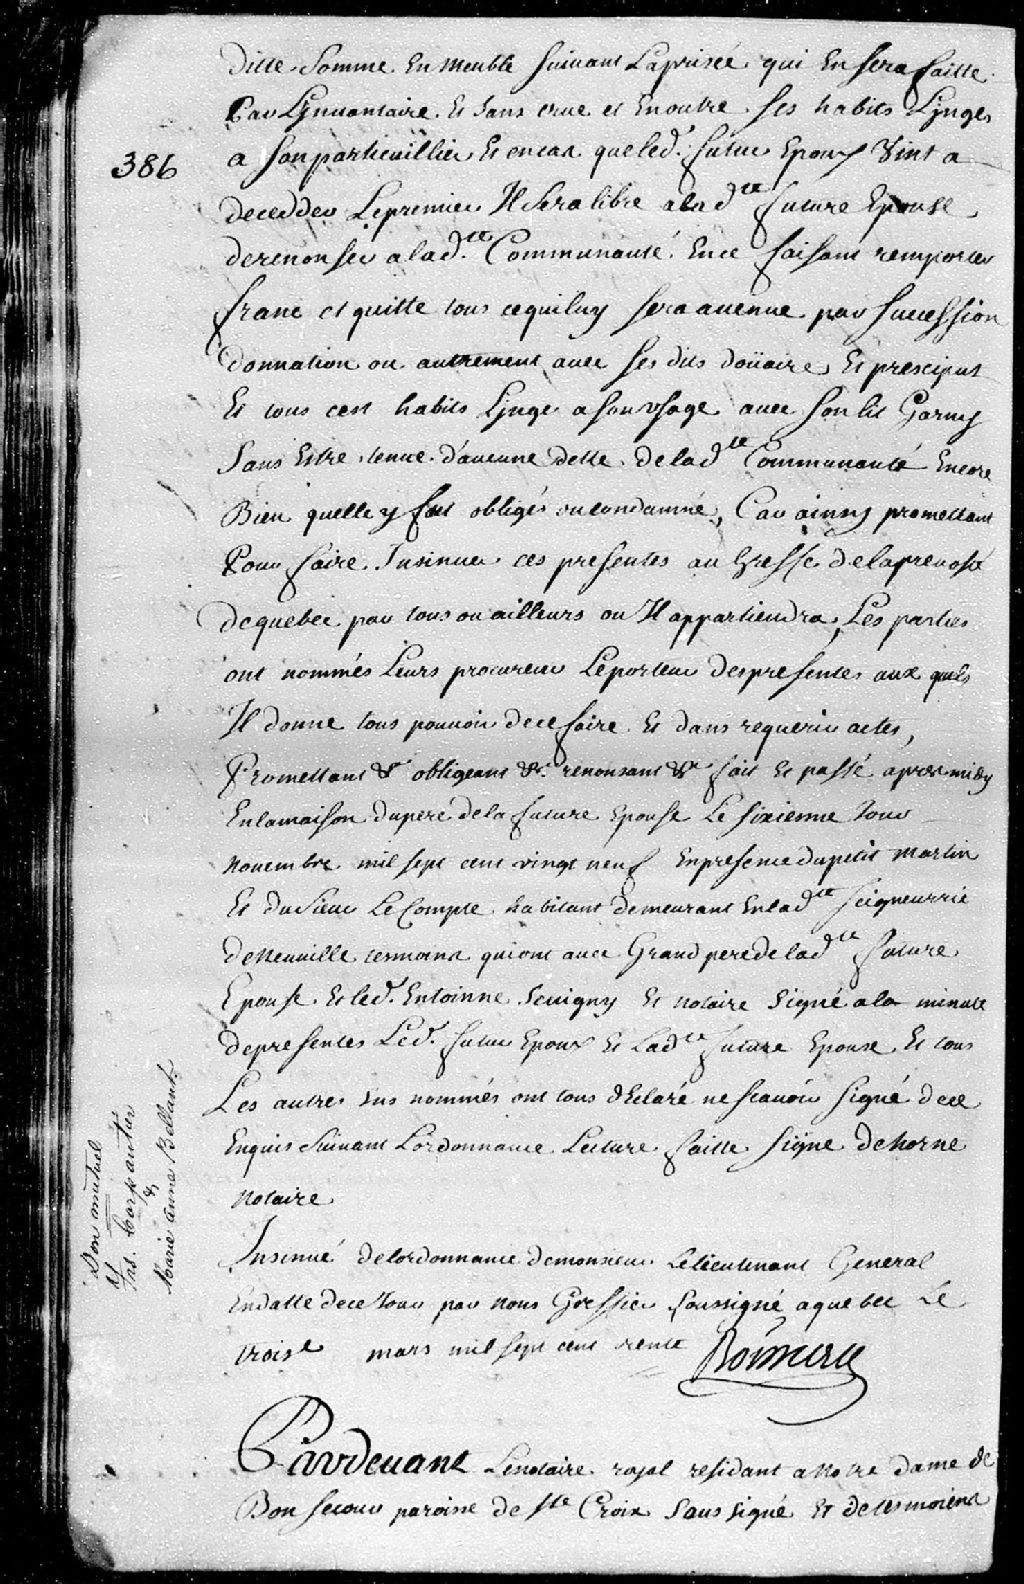 ditte Somme En meuble suivant Laprisée qui En sera faitte
Par Linuantaire Et sans crue et En outre ses habits Linges
386
a son particuillier Et en cas queled. futur Epoux Vint a
decedder Lepremier Il sera libre a lad.te future Epouse
derenonser alad.te Communauté Ence faisant remporter
franc et quitte tous cequiluy sera auenue par succession
donnation ou autrement auec ses dits doüaire Et presciput
Et tous ces habits Linge a son usage auec son lit Garny
Sans Estre tenue d'aucune dette delad.te Communauté Encore
Bien quelle y fut obligés ou condamné, Car ainsy promettant
Pour faire Insinuer ces presentes au Greffe delapreuosté
dequebec par tous ou ailleurs ou Il appartiendra, Les parties
ont nommés Leurs procureur Leporteur despresentes aux quels
Il donne tous pouuoir dece faire Et dans requerir actes,
Promettant &c obligeant &c renonsant &c fait Et passé apres midy
Enlamaison dupere dela future Epouse Le sixienme Jour
nouembre mil sept cent vingt neuf Enpresence dupetit Martin
Et du Sieur LeCompte habitant demeurant Enlad.te Seigneurrie
deNeuuille tesmoins quiont auec Grand pere de lad.te future
Epouse Et led. Entoinne Seuigny Et notaire Signé a la minute
depresentes Led. futur Epoux Et Lad.te future Epouse Et tous
Les autres sus nommés ont tous dEclaré ne scauoir signé dece
Enquis suiuant Lordonnance Lecture faitte Signe deHorne
Notaire
Don mutuel
Frs. Carpantier
&
Marie anne Bellant
Insinué delordonnance demonsieur Lelieutenant General
Endatte dece Jour par nous Greffier soussigné aquebec Le
trois.e mars mil sept cent trente Boisseau
Pardeuant Lenotaire royal residant a Notre dame de
Bon secour paroisse de Ste Croix sous signé Et de tesmoiens